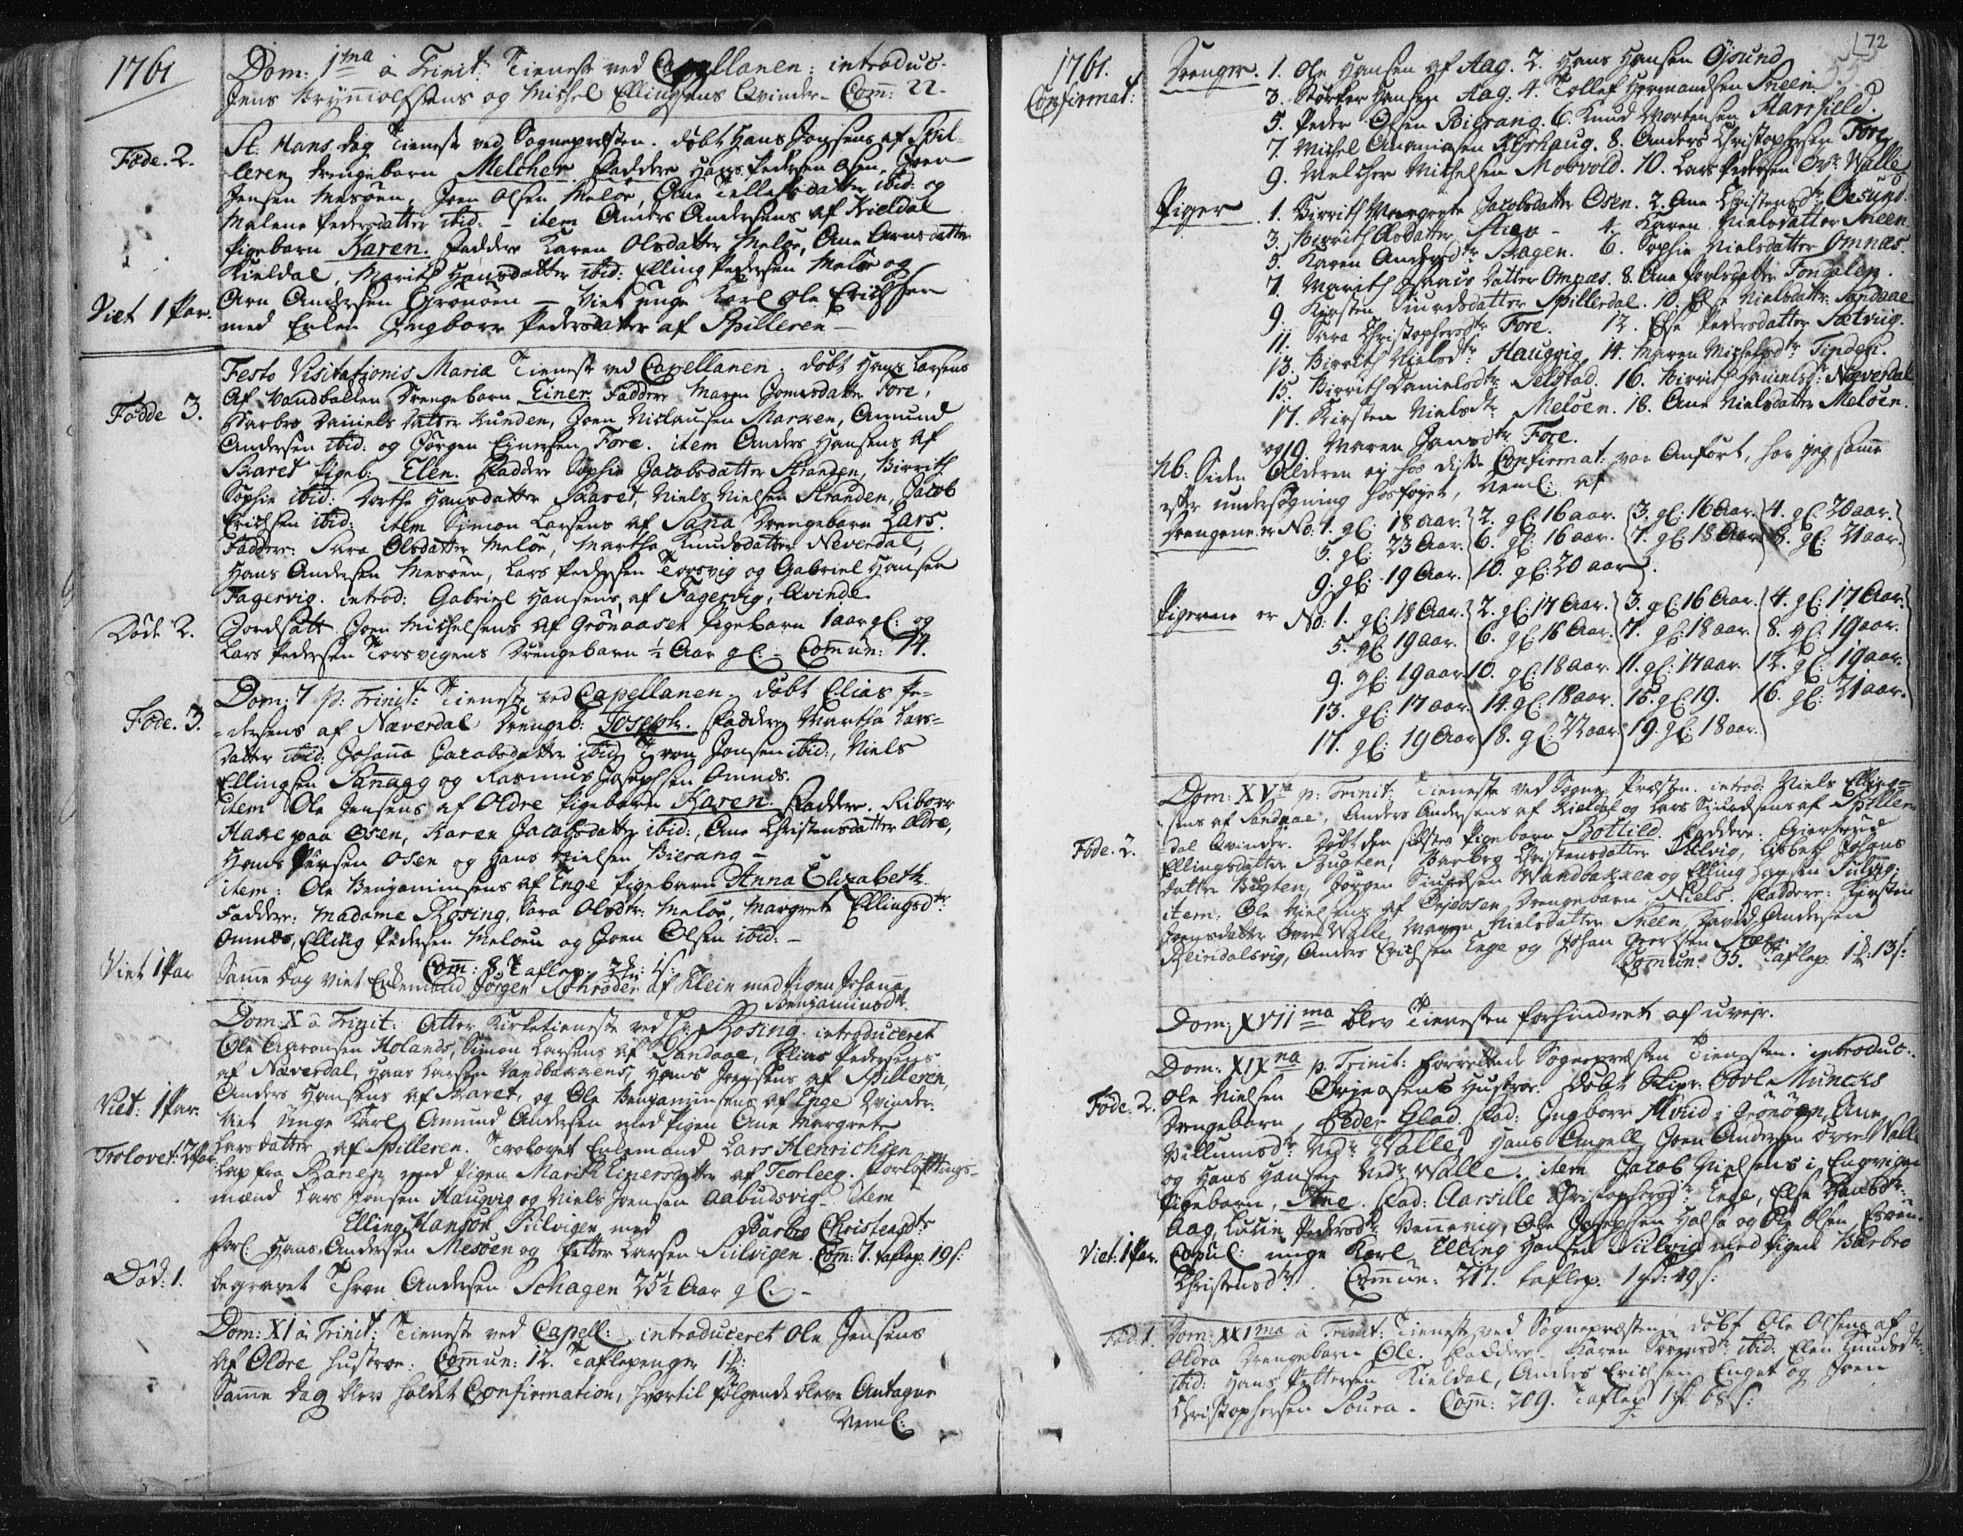 1761
Dom: 1ma à Trinit: Tieneste ved Capellanen: introduc.
Jens Brynnolfsens og Michel Ellingsens Qvinder. Com: 22.
Føde. 2.
St. Hans dag Tieneste ved Sognepræsten. døbt Hans Jonsens af Spil-
leren drengebarn Melcher Faddere Hans Pedersen Osen, Joen
Jensen Mesøen, Joen Olsen Meløe, Ane Tellefsdatter ibid: og
Malene Pedersdatter ibid: - item Anders Andersens af Kieldal
Pigebarn Karen. Faddere Karen Olsdatter Meløe, Ane Arnsdatter
Kieldal, Marith Hansdatter ibid: Elling Pedersen Meløe og
Arn Andersen Grønøen -
Viet 1 Par.
Viet unge Karl Ole Erichsen
med Enken Ingborr Pedersdatter af Spilleren -
Fødde 3.
Festo Visitationis Mariæ Tieneste ved Capellanen. døbt Hans Larsens
af Vandbakken Drengebarn Einer Faddere Maren Jonnsdatter Fore,
Barbro Daniels datter Kunden, Joen Niclausen Marken, Amund
Andersen ibid. og Jørgen Einersen Fore. item Anders Hansens af
Skaret Pigeb: Elen. Faddere Sophie Jacobsdatter Stranden, Birrith
Sophie ibid: Dorthe Hansdatter Skaret, Niels Nielsen Stranden, Jacob
Erichsen ibid: item Simon Larsens af Sana Drengebarn Lars.
Faddere: Sara Olsdatter Meløe, Martha Knudsdatter Neverdal,
Hans Andersen Mesøen, Lars Pedersen Torsvig og Gabriel Hansen
Fagervig. introd: Gabriel Hansens af Fagervig, Qvinde.
Døde 2.
Jordsatt Joen Michelsens af Grønaaset Pigebarn 1 aar gl: og
Lars Pedersen Torsvigens Drengebarn ½ Aar gl: - Commun: 74.
Føde. 3.
Dom: 7 p: Trinit: Tieneste ved Capellanen. døbt Elias Pe-
dersens af Næverdal Drengeb: Joseph. Faddere Martha Lars-
datter ibid: Johanna Jacobsdatter ibid, Tron Jonsen ibid:, Niels
Ellingsen Skinagg og Rasmus Josephsen Omnes.
item Ole Jensens af Oldre Pigebarn Karen. Faddere. Riborr
Hake paa Osen, Karen Jacobsdatter ibid:, Ane Christensdatter Oldre,
Hans Persen Osen og Hans Nielsen Bierang -
item: Ole Benjaminsens af Enge Pigebarn Anna Elizabeth
Faddere: Madame Rosing, Sara Olsdtr: Meløe, Margrete Ellingsdtr:
Omnes, Elling Pedersen Meløen og Joen Olsen ibid: -
Com: 8. Taflep:
Viet 1 Par
Samme dag viet Enkemand Jørgen Schrøder af Klein med Pigen Johanna
Benjaminsdtr.
Dom: X à Trinit: Atter Kirketieneste ved Hr: Rosing. introduceret
Ole Aaronsen Holands, Simon Larsens af Sandaae, Elias Pedersens
af Næverdal, Hans Larsen Vandbakkens, Hans Jonsens af Spilleren,
Anders Hansens af Skaret, og Ole Benjaminsens af Enge Qvinder.
Viet: 1 Par.
Viet Unge Karl Amund Andersen med Pigen Ane Margrete
Larsdatter af Spilleren.
Trolovet: 2 Par
Trolovet Enkemand Lars Henrichsen
Lap fra Ranen med Pigen Marith Einersdatter af Teorleeg. Forløftnings-
mænd Lars Jonsen Haugvig og Niels Joensen Aabudsvig. item
Elling Hansen Siilvigen med Barbro Christensdtr
forl: Hans Andersen Mesøen og Petter Larsen Siilvigen. Com: 7. taflep. 19 s:
Død: 1.
begravet Thron Andersen Schagen 25½ Aar gl: -
Dom: XI à Trinit: Tieneste ved Capell: introduceret Ole Jensens
af Oldre hustroe: Commun: 12. Taflepenge
Samme Dag blev holdet Confirmation, hvortil følgende bleve Antagne
Neml:
72
1761.
Confirmat:
Drenger. 1. Ole Hansen af Aag. 2. Hans Hansen Øjsund
3. Størker Hansen Aag. 4. Tollef Hermandsen Sneen
5. Peder Olsen Bierang. 6. Knud Mortensen Harsfield.
7. Michel Ananiasen Kyrhaug. 8. Anders Christophersen Fore
9. Melcher Michelsen Moevold. 10. Lars Pedersen Ovr. Walle
Piger 1. Birrith Margrete Jacobsdatter Osen. 2. Ane Christensdr. Øesund.
3. Birrith Olsdatter Stien - 4. Karen Nielsdatter Sneen
5. Karen Andersdtr. Skagen. 6. Sophie Nielsdatter Omnæs.
7. Marith Frants Datter Omnæs. 8. Ane Povlsdatter Fondalen.
9. Kirsten Siurdsdatter Spillerdal. 10. Else Nielsdattr: Sandaae
11. Sara Christophersdtr Fore. 12. Else Pedersdatter Sætviig.
13. Birrith Nielsdtr Haugvig 14. Maren Michelsdtr Tinden.
15. Birrith Danielsdtr Selstad. 16. Birrith Danielsd: Næverdal
17. Kirsten Nielsdtr Meløen. 18. Ane Nielsdatter Meløen.
og 19. Maren Jensdtr Fore.
Nb: Siden Alderen ej hos disse Confirmat: var Anført, har jeg samme
efter undersøgning hosføjet, Neml: af
Drengene er No: 1. gl: 18 aar. 2. gl: 16 aar. 3. gl: 16 Aar. 4. gl: 20 aar.
5. gl: 23 Aar. 6. gl: 16 aar. 7. gl: 18 Aar 8. gl: 21 aar.
9. gl: 19 Aar. 10. gl: 20 aar.
Pigerne er No: 1. gl: 18 Aar. 2. gl: 17 Aar. 3. gl: 16 Aar. 4. gl: 17 Aar.
5. gl: 19 aar. 6. gl: 16 Aar. 7. gl: 18 aar. 8. gl: 19 aar.
9. gl: 19 aar 10. gl: 18 aar. 11. gl: 17 aar. 12. gl: 19 aar.
13. gl: 17 aar. 14. gl: 18 aar. 15. gl: 19. 16. gl: 21 aar.
17. gl: 19 Aar 18. gl: 22 aar. 19. gl: 18 aar.
Dom: XVta p: Trinit: Tieneste ved Sogne Præsten. introd: Niels Elling-
sens af Sandaae, Anders Andersens af Kieldal og Lars Siurdsens af Spiller-
Føde. 2.
dal Qvinder. Døbt den sidstes Pigebarn Bottild. Faddere: Giertrud
Ellingsdatter Bugten, Barbro Christensdatter Siilvig, Lisbeth Johans
datter Bugten, Jørgen Siurdsen Wandbakken og Elling Hansen Siilvig.
item: Ole Nielsens af Ørjeosen Drengebarn Niels. Faddere: Kirsten
Jensdatter Øvre Walle, Maren Nielsdatter Sneen, David Andersen
Reindalsvig, Anders Erichsen Enge og Johan
Commun: 35. Taflep. 1 13 s:
Dom: XVIIma blev Tienesten forhindret af uvejr.
Dom: XIXna p. Trinit: forrettede Sognepræsten Tienesten. introduc:
Føde. 2.
Ole Nielsen Ørjeosens Hustroe. Døbt Skipr. Povl Muncks
Drengebarn Peder Glad. Fad: Ingborr Hvid i Grønøen, Ane
Villumsdtr Nedr Walle, Hans Angell, Joen Andersen Øvre Walle
og Hans Hansen Nedr. Walle. item Jacob Nielsens i Engvigen
Pigebarn, Ane. Fad: Aarsille Christophersdtr. Enge, Else Hansdtr:
Aag, Lucie Pedersdtr Vennevig, Ole Josephsen Halsa og Ole Olsen
Viet: 1 Par.
Copul: unge Karl Elling Hansen Siilvig med Pigen Barbro
Christensdtr. Commun: 217. taflep. 1 rd: 49 s:
Fød 1.
Dom: XXIma à Trinit: Tieneste ved Sognepræsten. døbt Ole Olsens af
Oldra Drengebarn Ole. Faddere - Karen Sørensdr. ibid: Elen Knudsdtr:
ibid: Hans Pettersen Kieldal, Anders Erichsen Enget og Joen
Christophersen Soura. Com: 209. Taflep 1 rd. 68 s: